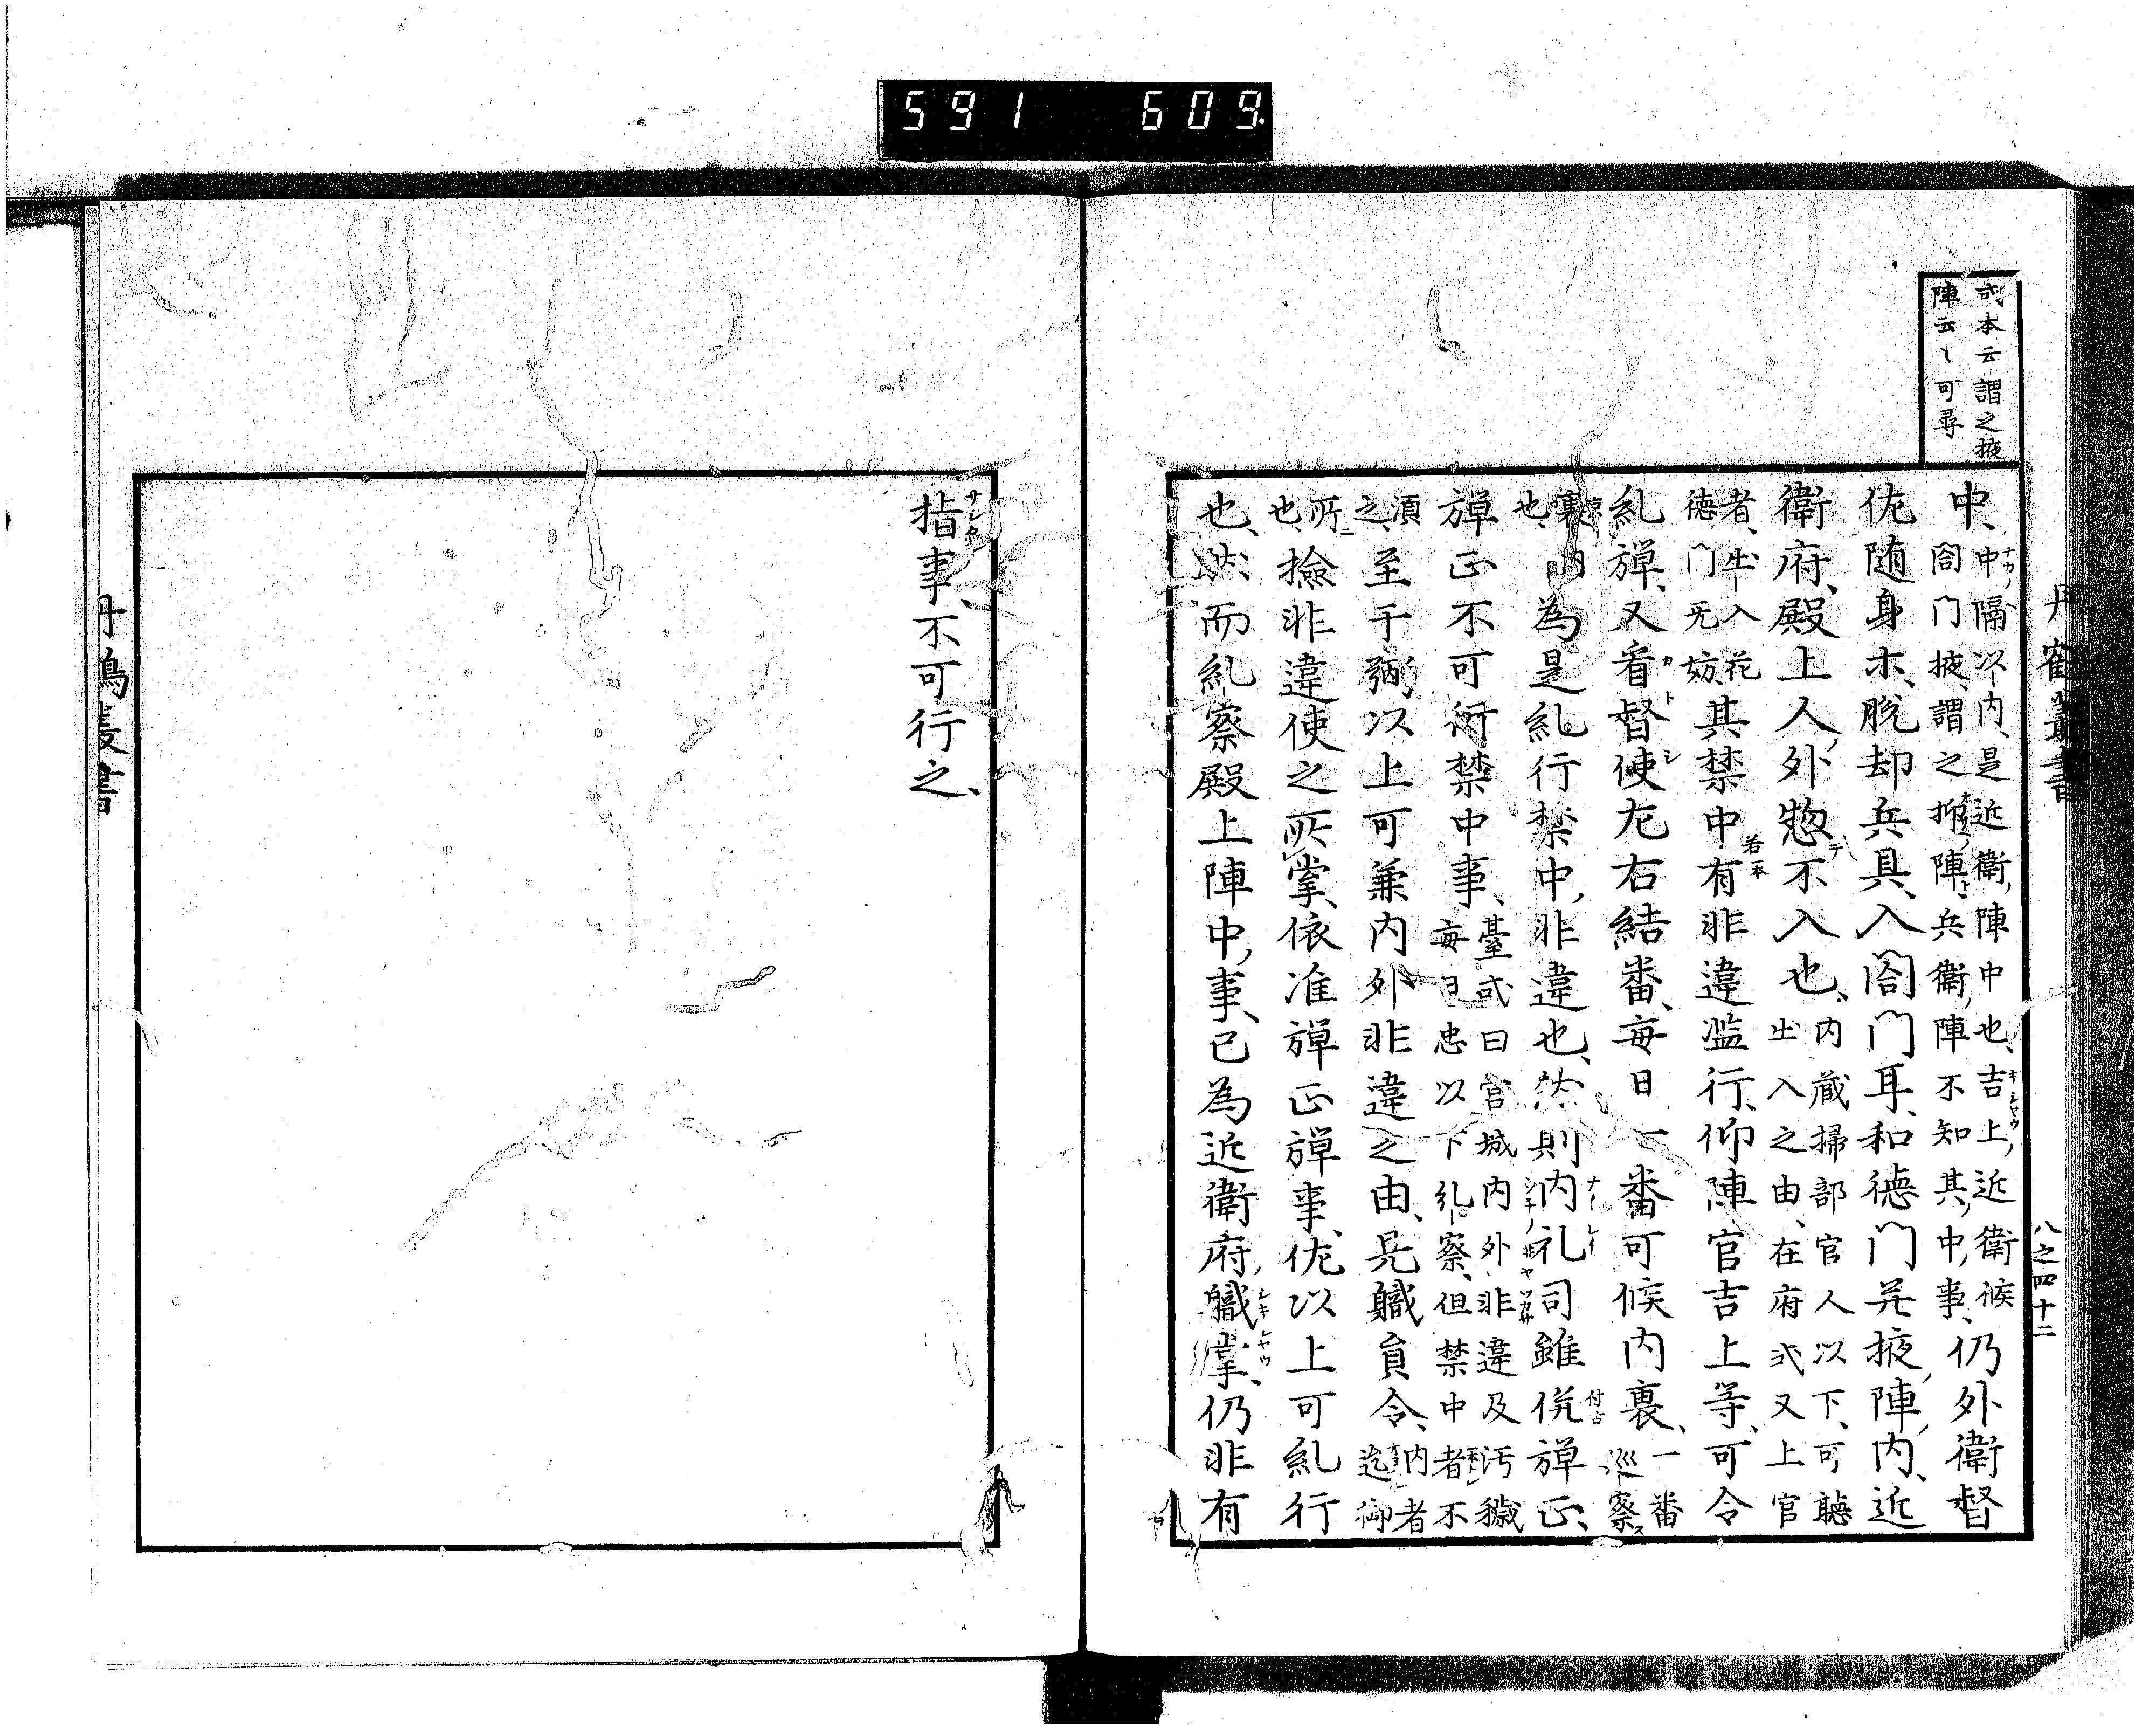 591 609
或本云謂之掖
陣云〻可尋
丹鶴叢書
八之四十二
中、中隔以内、是近衛陣中也、吉上近衛候
閤門掖、謂之抑陣、兵衛陣不知其中事、仍外衛督
佐随身木、脱却兵具、入閤門耳、和徳門并掖陣内、近
衛府、殿上人外惣不入也、内蔵掃部官人以下、可聴
出入之由、在府式又上官
者、出入花
徳門无妨、其禁中有非違濫行、仰陣官吉上等、可令
糺弾、又看督使左右結番、毎日一番可候内裏、一番
巡察
裏内
也、為是糺行禁中非違也、然則内礼司雖併弾正、
弾正不可行禁中事、䑓式曰官城内外非違及汚穢
毎日忠以下糺察、但禁中者不
須
之、至于弼以上可兼内外非違之由、見職員令、内者
迄御
所
也、撿非違使之所掌、依准弾正弾事、佐以上可糺行
也、然而糺察殿上陣中事、已為近衛府職掌、仍非有
指事、不可行之、
丹鶴叢書